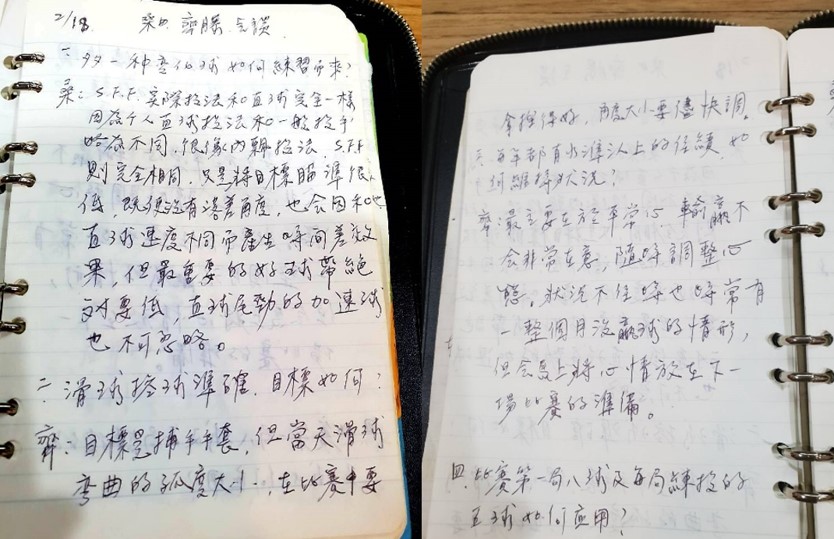 2/18. 桑田 齊藤 会談
一、多一种变化球如何練習而來?
桑:S.F.F.实際投法和直球完全一樣
因為个人直球投法和一般投手
略為不同,很像內野投法,S.F.F
則完全相同,只是將目標瞄準很
低,既便沒有落差角度,也会因和
直球速度不同而產生時间差效
果,但最重要的好球帶絕
对要低、直球尾勁的加速球
也不可忽略。
二、滑球控球準確,目標如何?
齊:目標是捕手手套,但當天滑球
弯曲的弧度大小,在比賽中要
拿捏得好,角度大小要儘快調。
三、每年都有水準以上的成績,如
何維持狀况?
齊:最主要在於平常心,輸贏不
会非常在意,隨時調整心
態,狀况不佳時也時常有
整個月沒贏球的情形,
但会馬上將心情放在下一
場比賽的準備。
四、比賽第一局八球及每局練投的
五球如何应用?